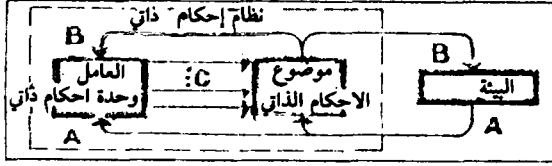 نظام إحكام ذاتي
B
B
العامل
وحدة احكام ذاتي
:C
موضوع
الاحكام الذاتي
البيئة
A
A